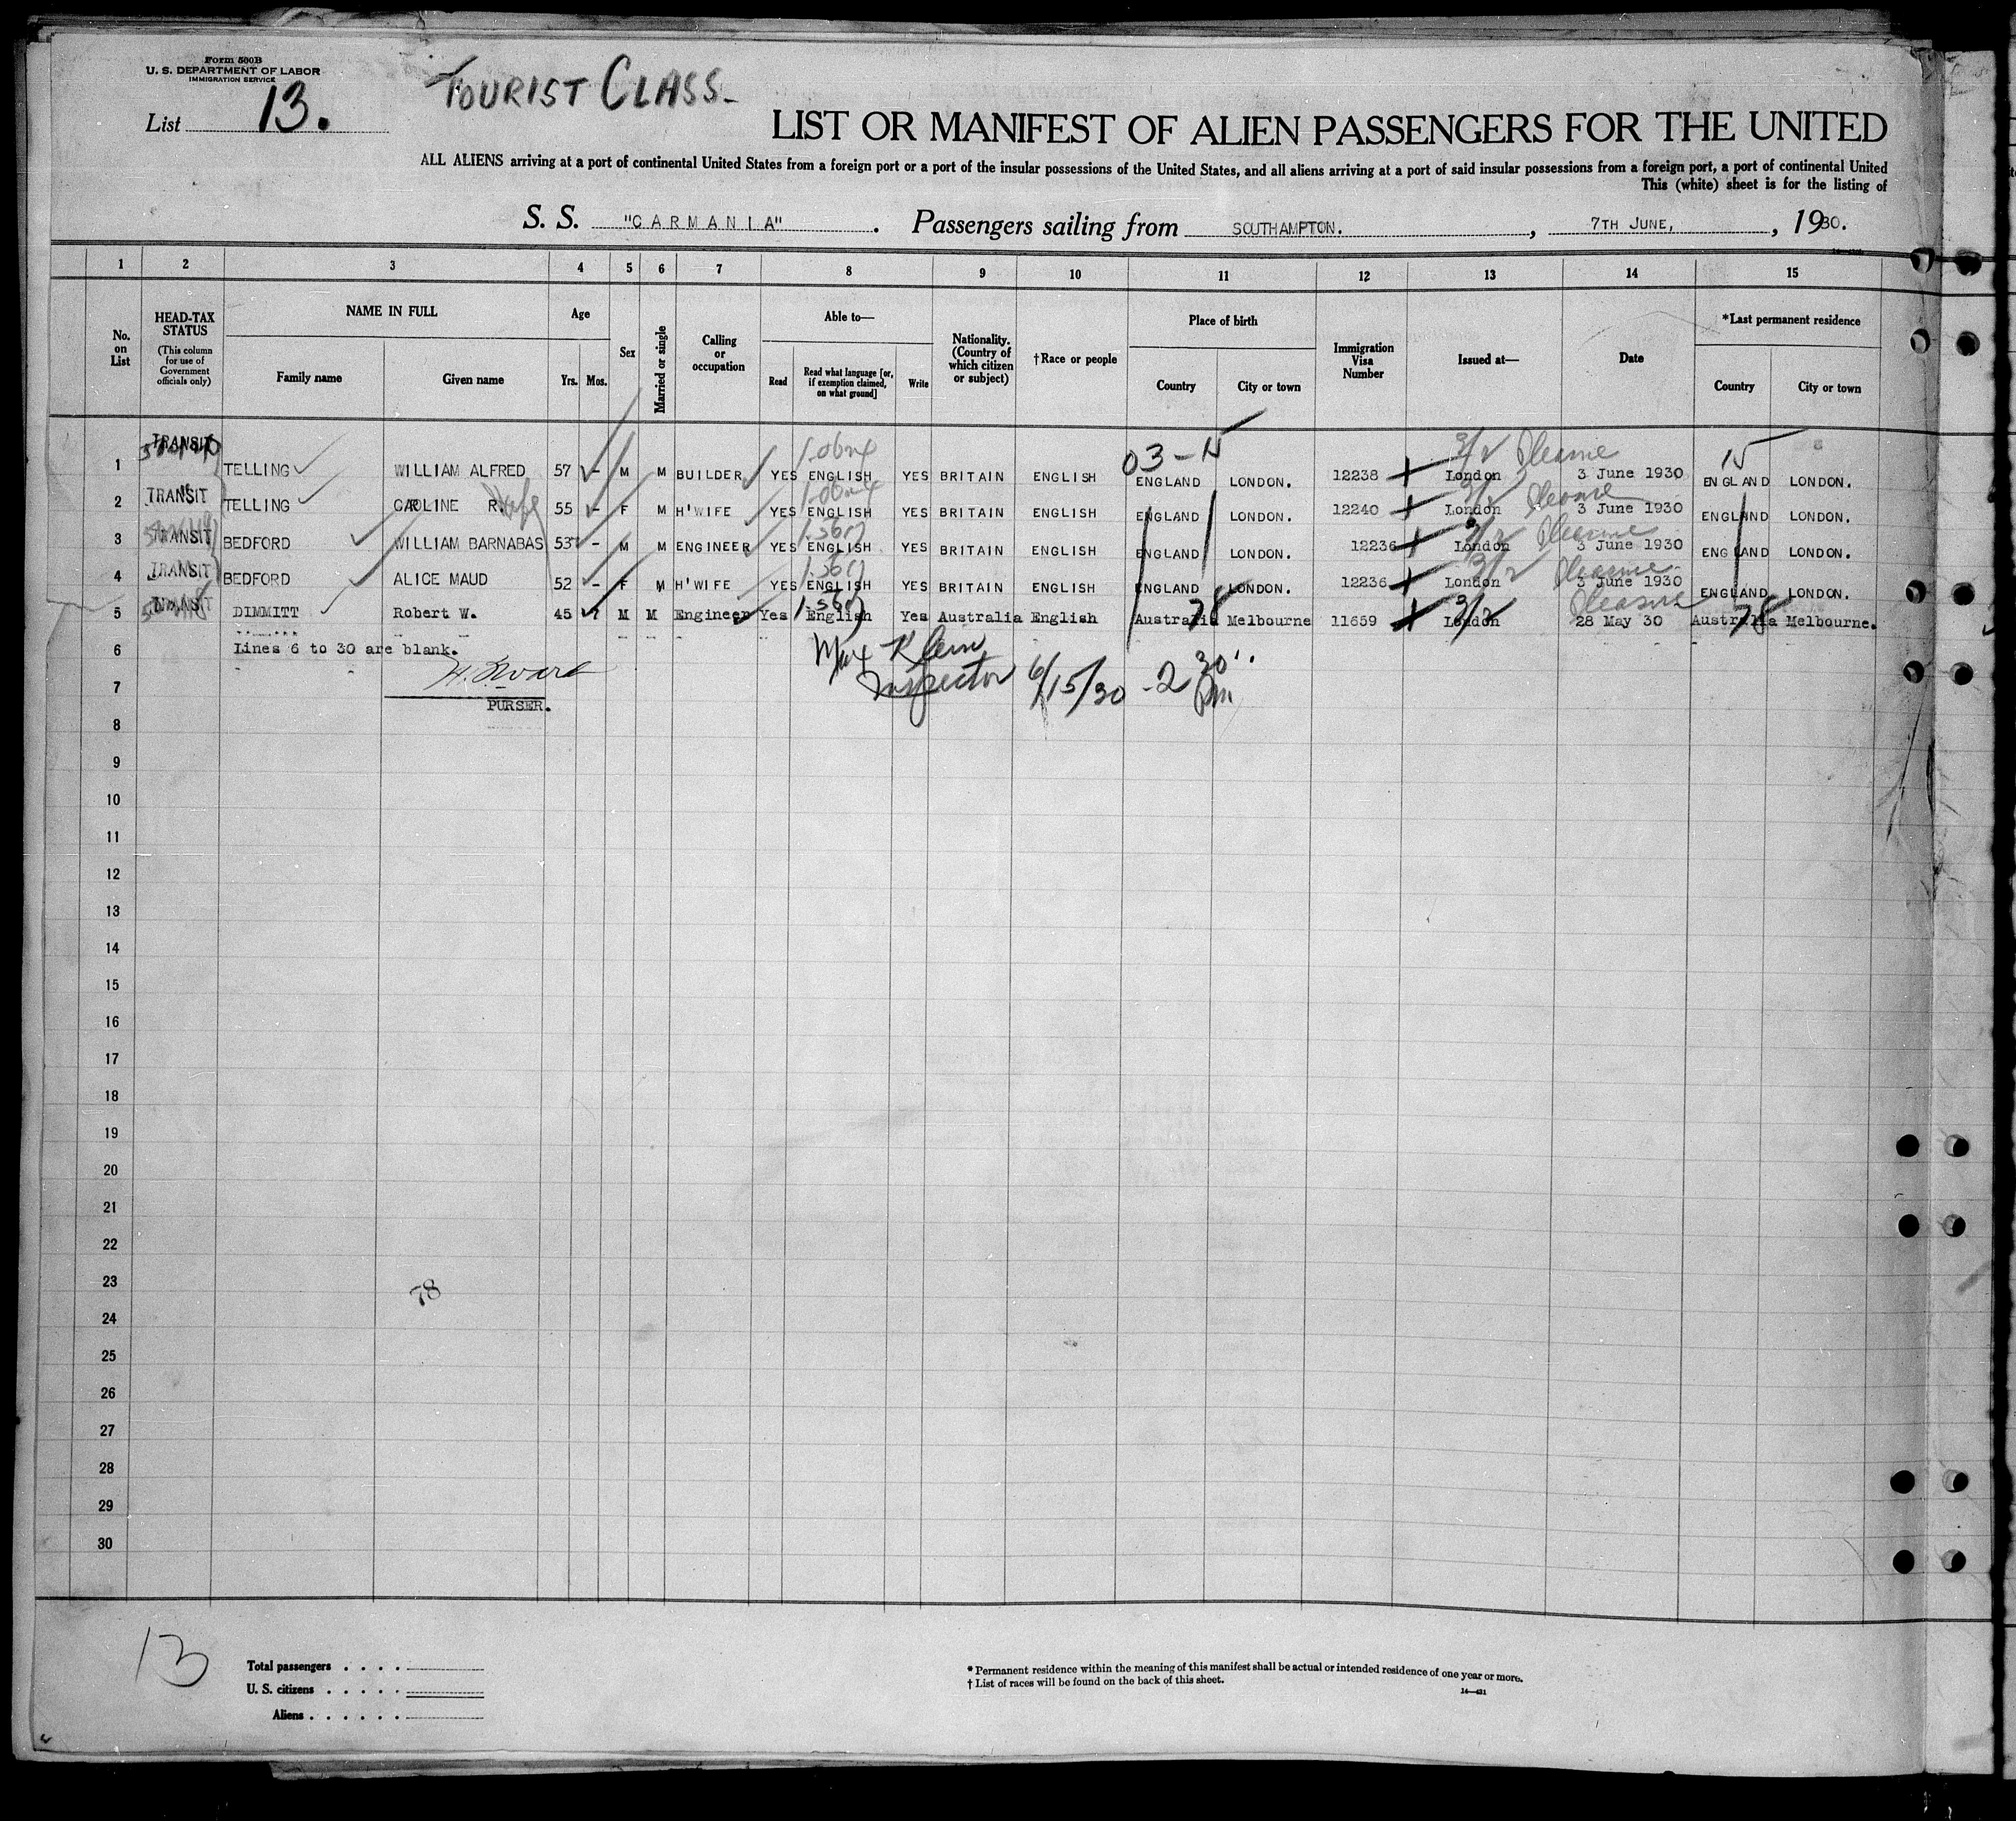 Form 500B
U. S. DEPARTMENT OF LABOR
IMMIGRATION SERVICE
List 13.
TOURIST CLASS-
LIST OR MANIFEST OF ALIEN PASSENGERS FOR THE UNITED
ALL ALIENS arriving at a port of continental United States from a foreign port or a port of the insular possessions of the United States, and all aliens arriving at a port of said insular possessions from a foreign port, a port of continental United
This (white) sheet is for the listing of
S. S. "CARMANIA". Passengers sailing from SOUTHAMPTON., 7TH JUNE, , 1930.
1 2 3 4 5 6 7 8 9 10 11 12 13 14 15
No. on List
HEAD-TAX STATUS (This column for use of Government officials only)
NAME IN FULL
Family name Given name
Age
Yrs. Mos.
Sex
Married or single
Calling or occupation
Able to—
Read Read what language [or, if exemption claimed, on what ground] Write
Nationality. (Country of which citizen or subject)
†Race or people
Place of birth
Country City or town
Immigration Visa Number
Issued at—
Date
*Last permanent residence
Country City or town
03-15 3/2 Pleasure 15
1 TRANSIT TELLING WILLIAM ALFRED 57 - M M BUILDER YES ENGLISH YES BRITAIN ENGLISH ENGLAND LONDON. 12238 London 3 June 1930 ENGLAND LONDON.
3/2 Pleasure
2 TRANSIT TELLING CAROLINE R. Hope 55 - F M H'WIFE YES ENGLISH YES BRITAIN ENGLISH ENGLAND LONDON. 12240 London 3 June 1930 ENGLAND LONDON.
3/2 Pleasure
3 TRANSIT BEDFORD WILLIAM BARNABAS 53 - M M ENGINEER YES ENGLISH YES BRITAIN ENGLISH ENGLAND LONDON. 12236 London 3 June 1930 ENGLAND LONDON.
3/2 Pleasure
4 TRANSIT BEDFORD ALICE MAUD 52 - F M H'WIFE YES ENGLISH YES BRITAIN ENGLISH ENGLAND LONDON. 12236 London 3 June 1930 ENGLAND LONDON.
78 3/2 Pleasure 78
5 TRANSIT DIMMITT Robert W. 45 7 M M Engineer Yes English Yes Australia English Australia Melbourne 11659 London 28 May 30 Australia Melbourne.
6 Lines 6 to 30 are blank.
Max Klein
Inspector 6/15/30 - 2 30 Pm
7
PURSER.
8
9
10
11
12
13
14
15
16
17
18
19
20
21
22
23
78
24
25
26
27
28
29
30
13
Total passengers . . . .
U. S. citizens . . . . .
Aliens . . . . . .
* Permanent residence within the meaning of this manifest shall be actual or intended residence of one year or more.
† List of races will be found on the back of this sheet.
14—431